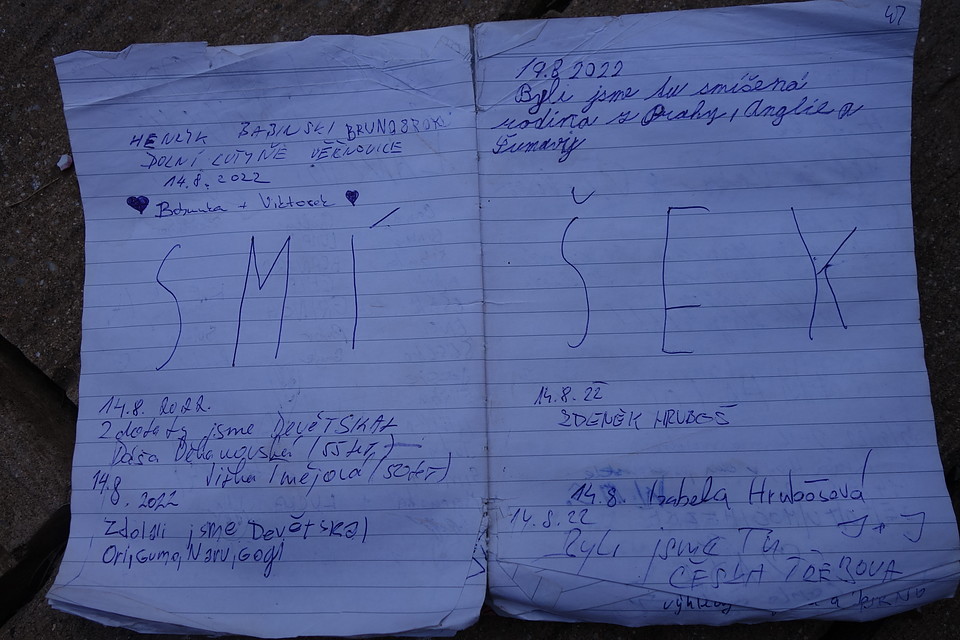 HENRYK BABINSKI
DOLNÍ LUTYNĚ VĚŘŇOVICE
14.8.2022
+ Viktorek
SMÍ
14.8.2022.
Zdolaly jsme DEVĚTSKAL
Dáša (55 let)
Jitka (50 let)
14.8.2022
Zdolali jsme Devětskal
Ori, Guma, Naru, Gogi
47
19.8.2022
Byli jsme tu smíšená
rodina z Prahy, Anglie a
Šumavy
ŠEK
14.8.22
ZDENĚK HRUBOŠ
14.8. Izabela Hrubošová
14.8.22
Byli jsme TU J+J
ČESKÁ TŘEBOVÁ